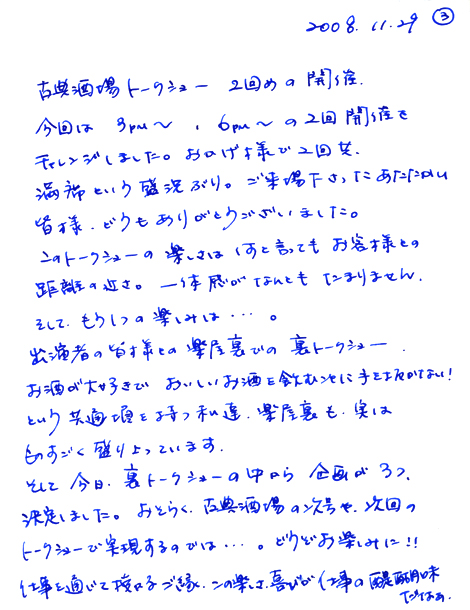 2008.11.29 ③
古典酒場トークショー 2回めの開催.
今回は 3pm〜, 6pm〜の2回開催を
チャレンジしました。おかげ様で2回共,
満席という盛況ぶり。ご来場下さったあたたかい
皆様.どうもありがとうございました。
このトークショーの楽しさは何と言ってもお客様との
距離の近さ。一体感がなんともたまりません.
そして.もう1つの楽しみは・・・。
出演者の皆様との楽屋裏での裏トークショー.
お酒が大好きで おいしいお酒を飲むことに手を抜かない!
という共通項を持つ私達.楽屋裏も.実は
ものすごく盛り上っています.
そして今日.裏トークショーの中から 企画が3つ,
決定しました。おそらく.古典酒場の次号や.次回の
トークショーで実現するのでは・・・。どうぞお楽しみに!!
仕事を通じて接するご縁.この楽しさ.喜びが仕事の醍醐味
だなぁ.